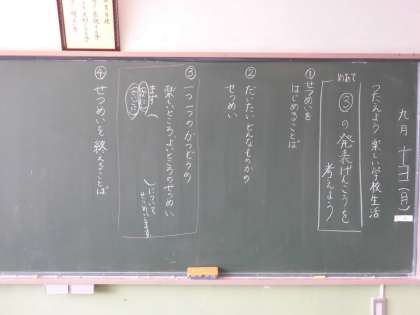 九月 十一日（月）
つたえよう 楽しい学校生活
めあて
③の発表げんこうを
考えよう
①せつめいを
はじめることば
②だいたいどんなものかの
せつめい
③一つ一つのかつどうの
楽しいところ、よいところのせつめい
まず
について
せつめいします。
④せつめいを終えることば